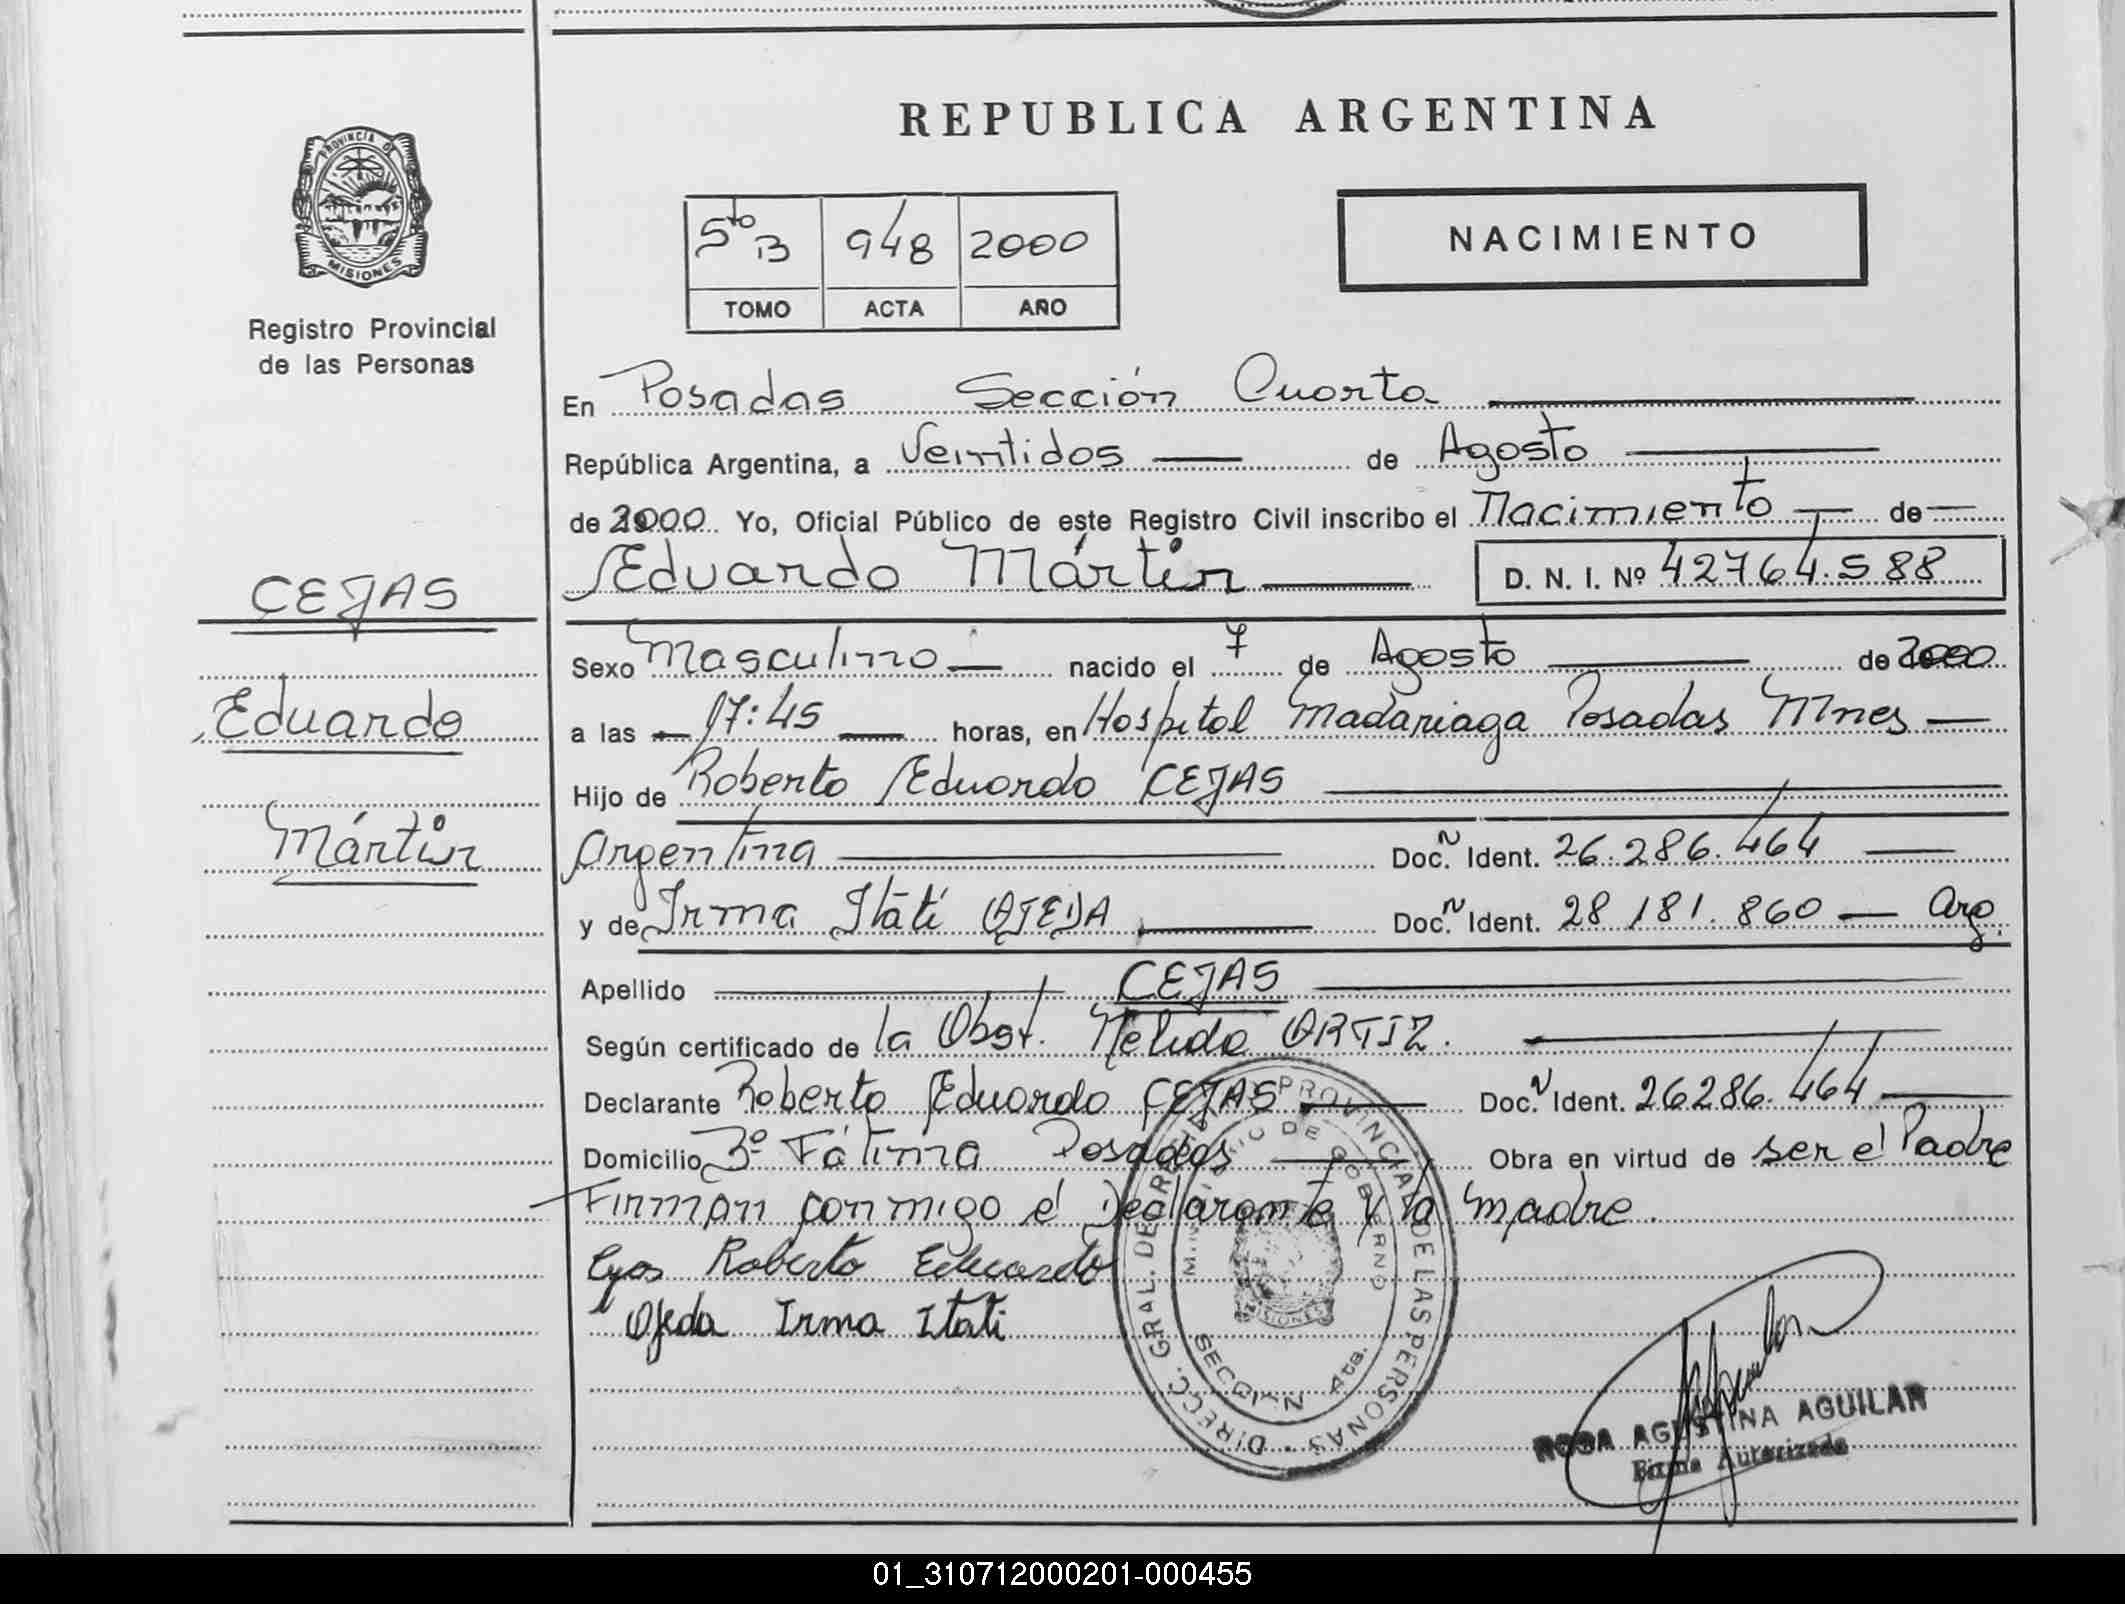 REPUBLICA ARGENTINA
PROVINCIA DE
MISIONES
Registro Provincial
de las Personas
5to B 948 2000
TOMO ACTA AÑO
NACIMIENTO
CEJAS
Eduardo
Mártin
En Posadas Sección Cuarta
República Argentina, a Veintidos de Agosto
de 2000 Yo, Oficial Público de este Registro Civil inscribo el Nacimiento de
Eduardo Mártin D. N. I. Nº 42764.588
Sexo Masculino nacido el 7 de Agosto de 2000
a las 17:45 horas, en Hospital Madariaga Posadas Mnes
Hijo de Roberto Eduardo CEJAS
Argentina Doc. Ident. 26.286.464
y de Irma Itatí OJEDA Doc. Ident. 28 181.860 Arg.
Apellido CEJAS
Según certificado de la Obst. Nelida ORTIZ.
Declarante Roberto Eduardo CEJAS Doc. Ident. 26286.464
Domicilio Bº Fátima Posadas Obra en virtud de ser el Padre
Firman conmigo el Declarante y la madre.
Roberto Eduardo
Ojeda Irma Itati
DIRECC. GRAL. DE REGISTRO PROVINCIAL DE LAS PERSONAS
MINISTERIO DE GOBIERNO
MISIONES
SECCION 4ta.
ROSA AGUSTINA AGUILAR
Firma Autorizada
01_310712000201-000455